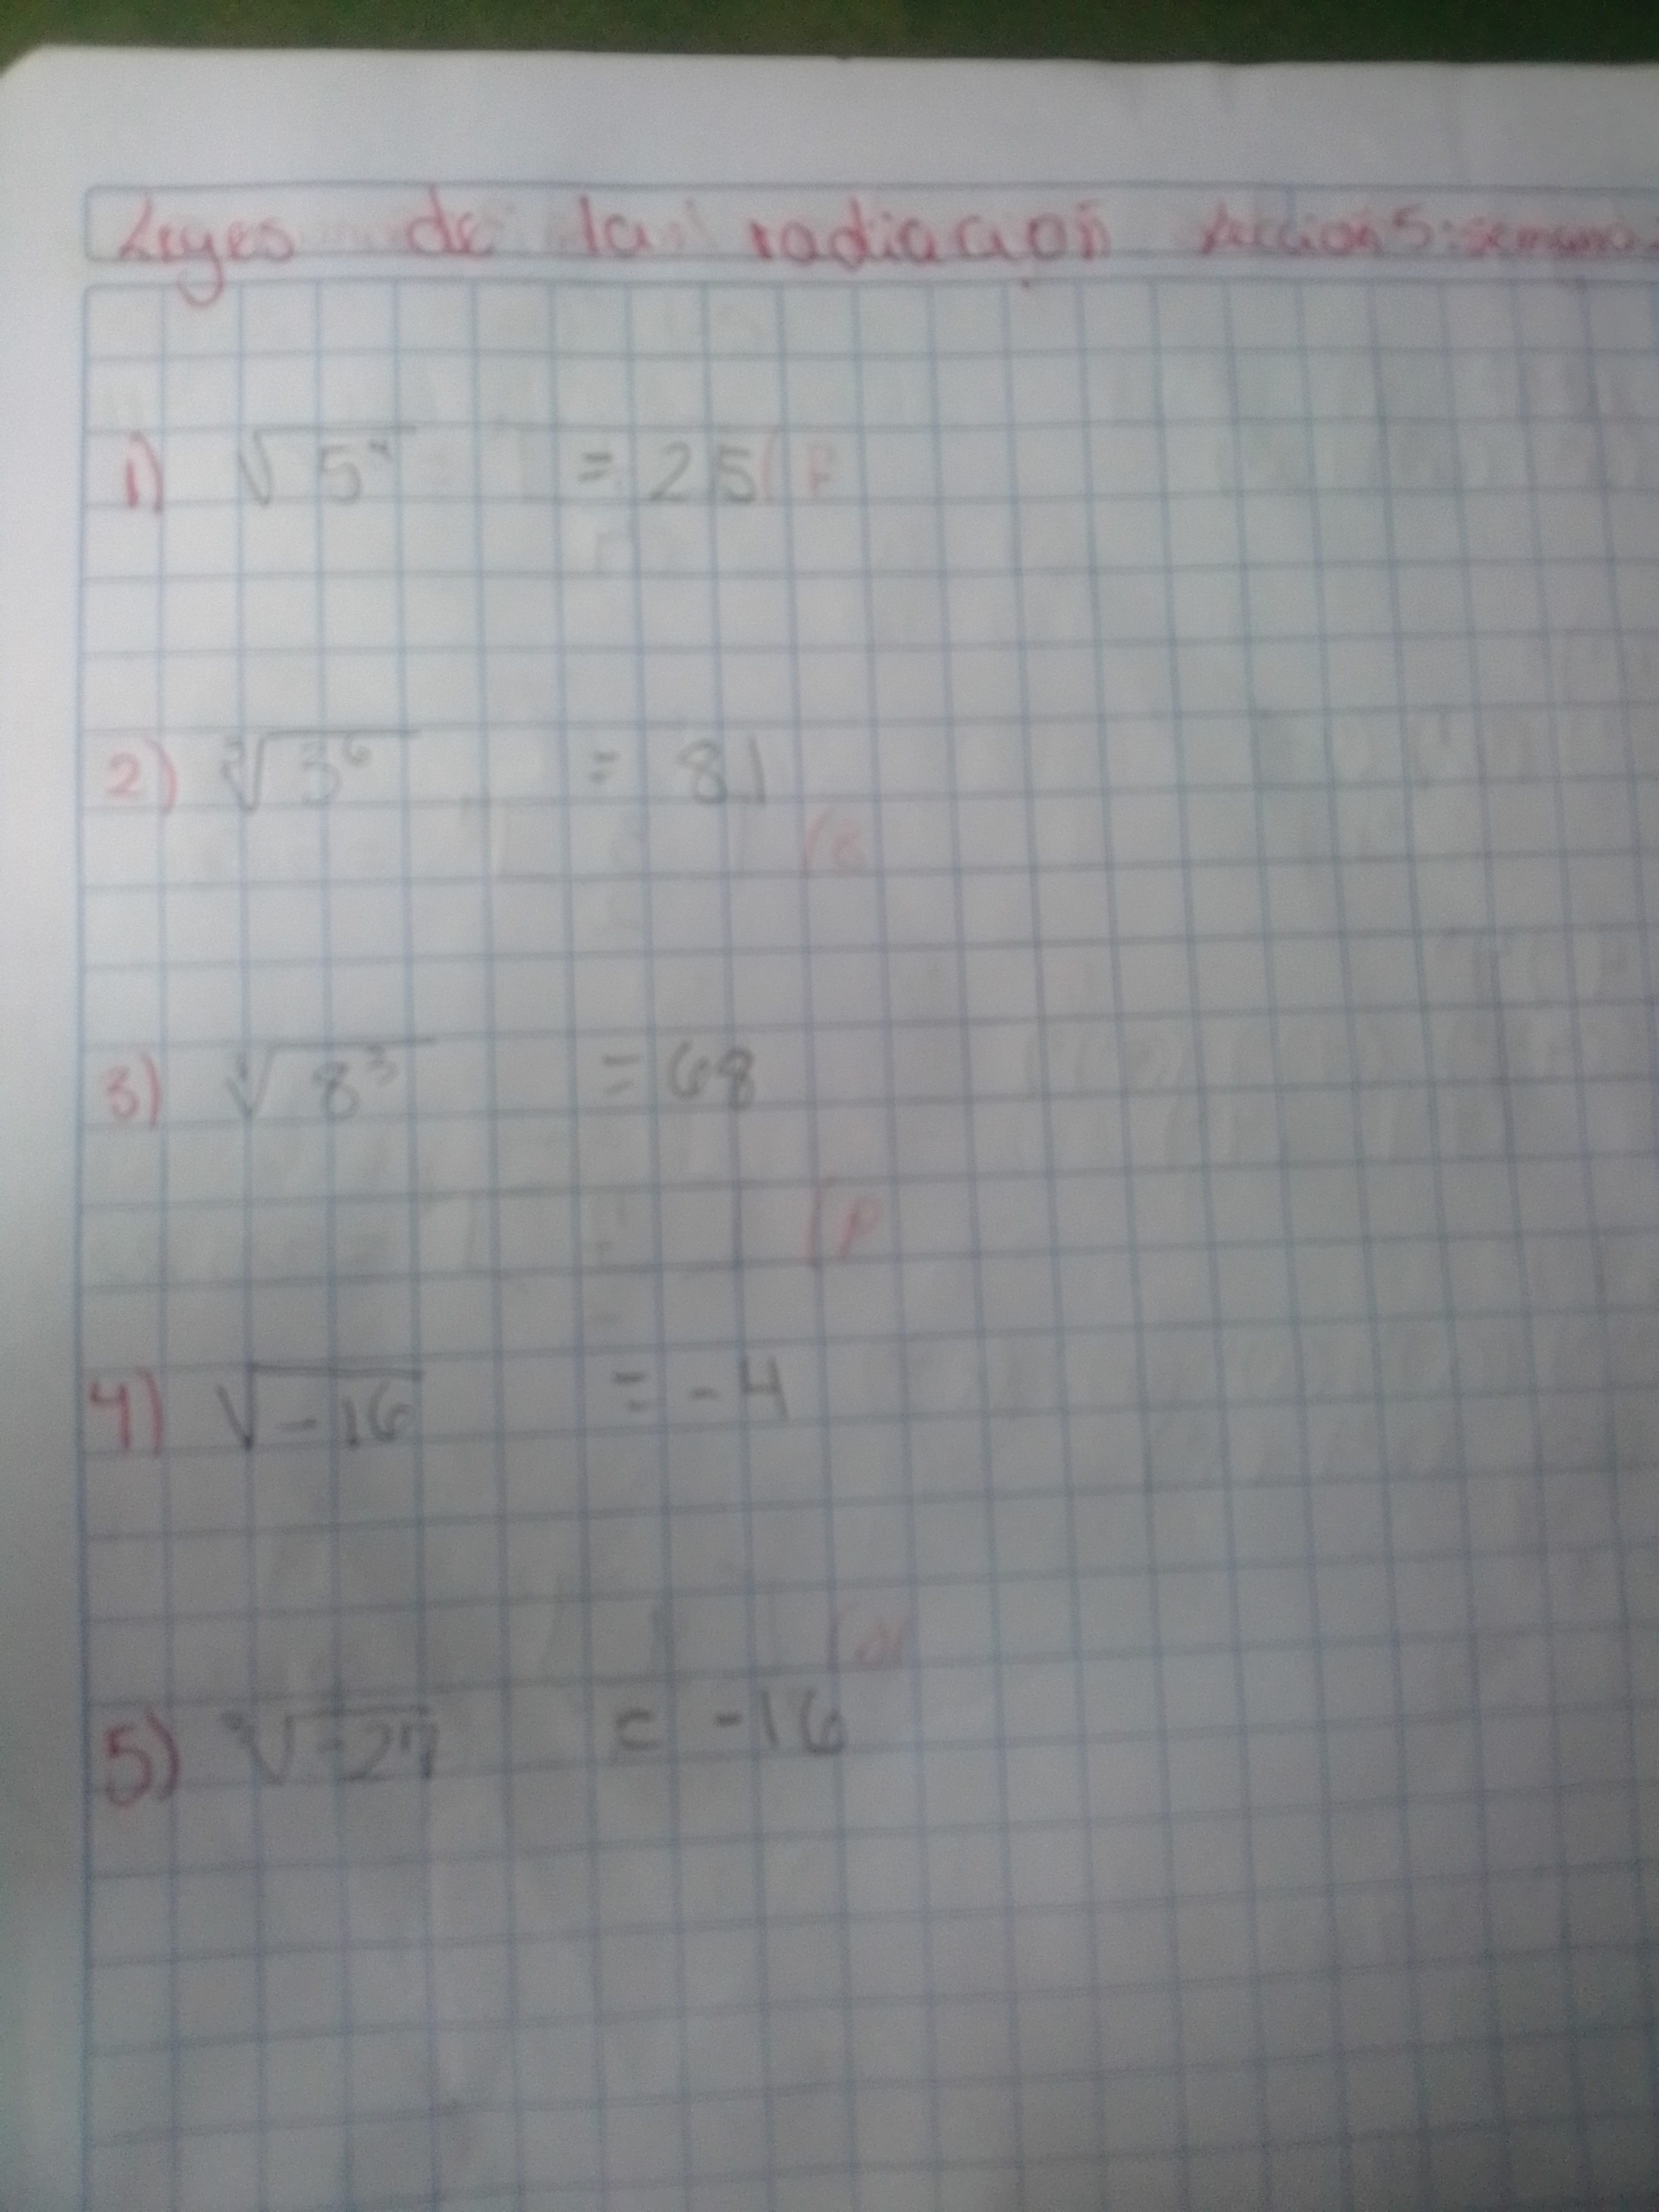 Leyes de la radiacion Leccion 5: semana
1) √5⁴ = 25 (R
2) ³√3⁶ = 81
(R
3) √8³ = 68
(R
4) √-16 = -4
(R
5) ³√-27 = -16